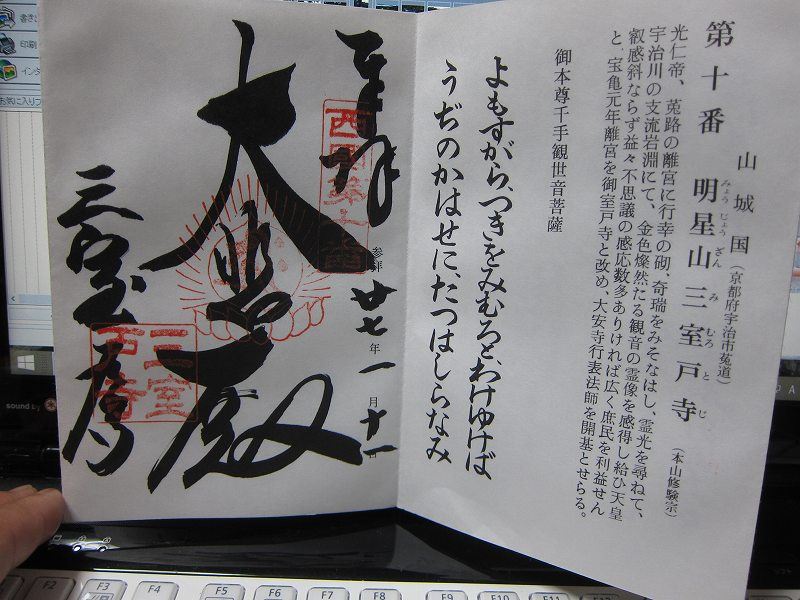 第十番　明星山三室戸寺（本山修験宗）
みょうじょうざんみむろとじ
山城国（京都府宇治市莵道）
光仁帝、莵路の離宮に行幸の砌、奇瑞をみそなはし、霊光を尋ねて、
宇治川の支流岩淵にて、金色燦然たる観音の霊像を感得し給ひ天皇
叡感斜ならず益々不思議の感応数多ありければ広く庶民を利益せん
と、宝亀元年離宮を御室戸寺と改め、大安寺行表法師を開基とせらる。
御本尊千手観世音菩薩
よもすがら、つきをみむろと、わけゆけば
うぢのかはせに、たつはしらなみ
奉拝
西國第十番
参拝 廿七年一月十一日
大悲殿
三室戸寺
三室
戸寺
書き
印刷
インタ
お気に入り
sound by
F2
F3
F4
F5
F6
F7
F8
F9
F10
F11